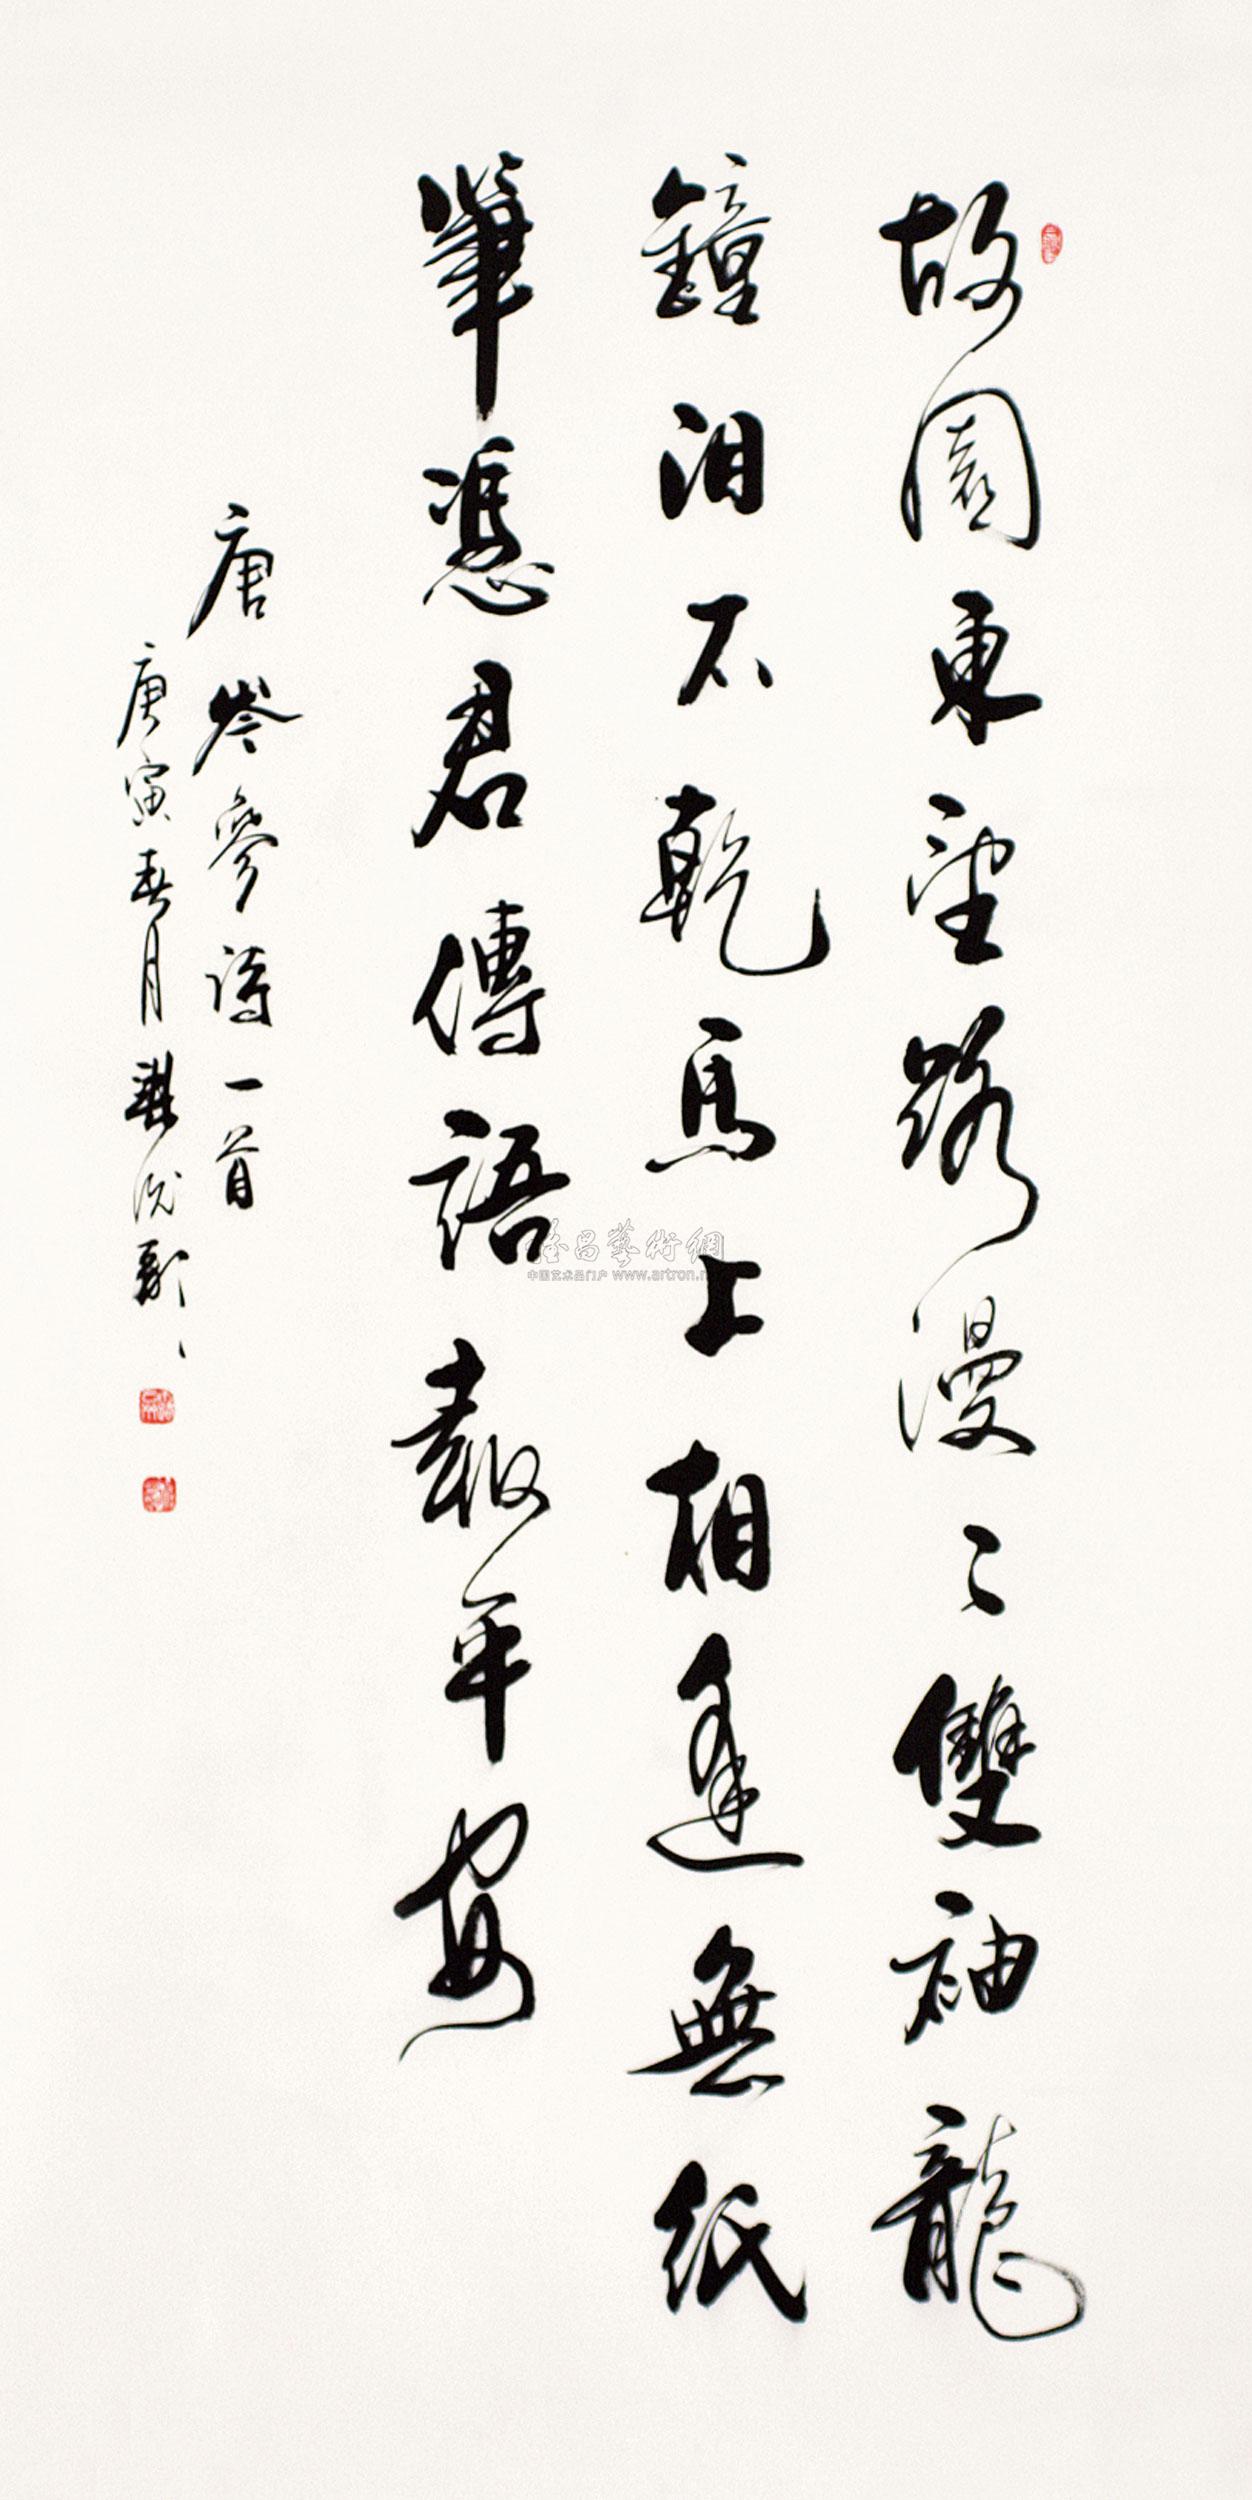 故園東望路漫〻雙袖龍
鐘泪不乾馬上相逢無紙
筆憑君傳語報平安
唐岑參詩一首
庚寅春月
雅昌藝術網
中国艺术品门户 www.artron.n